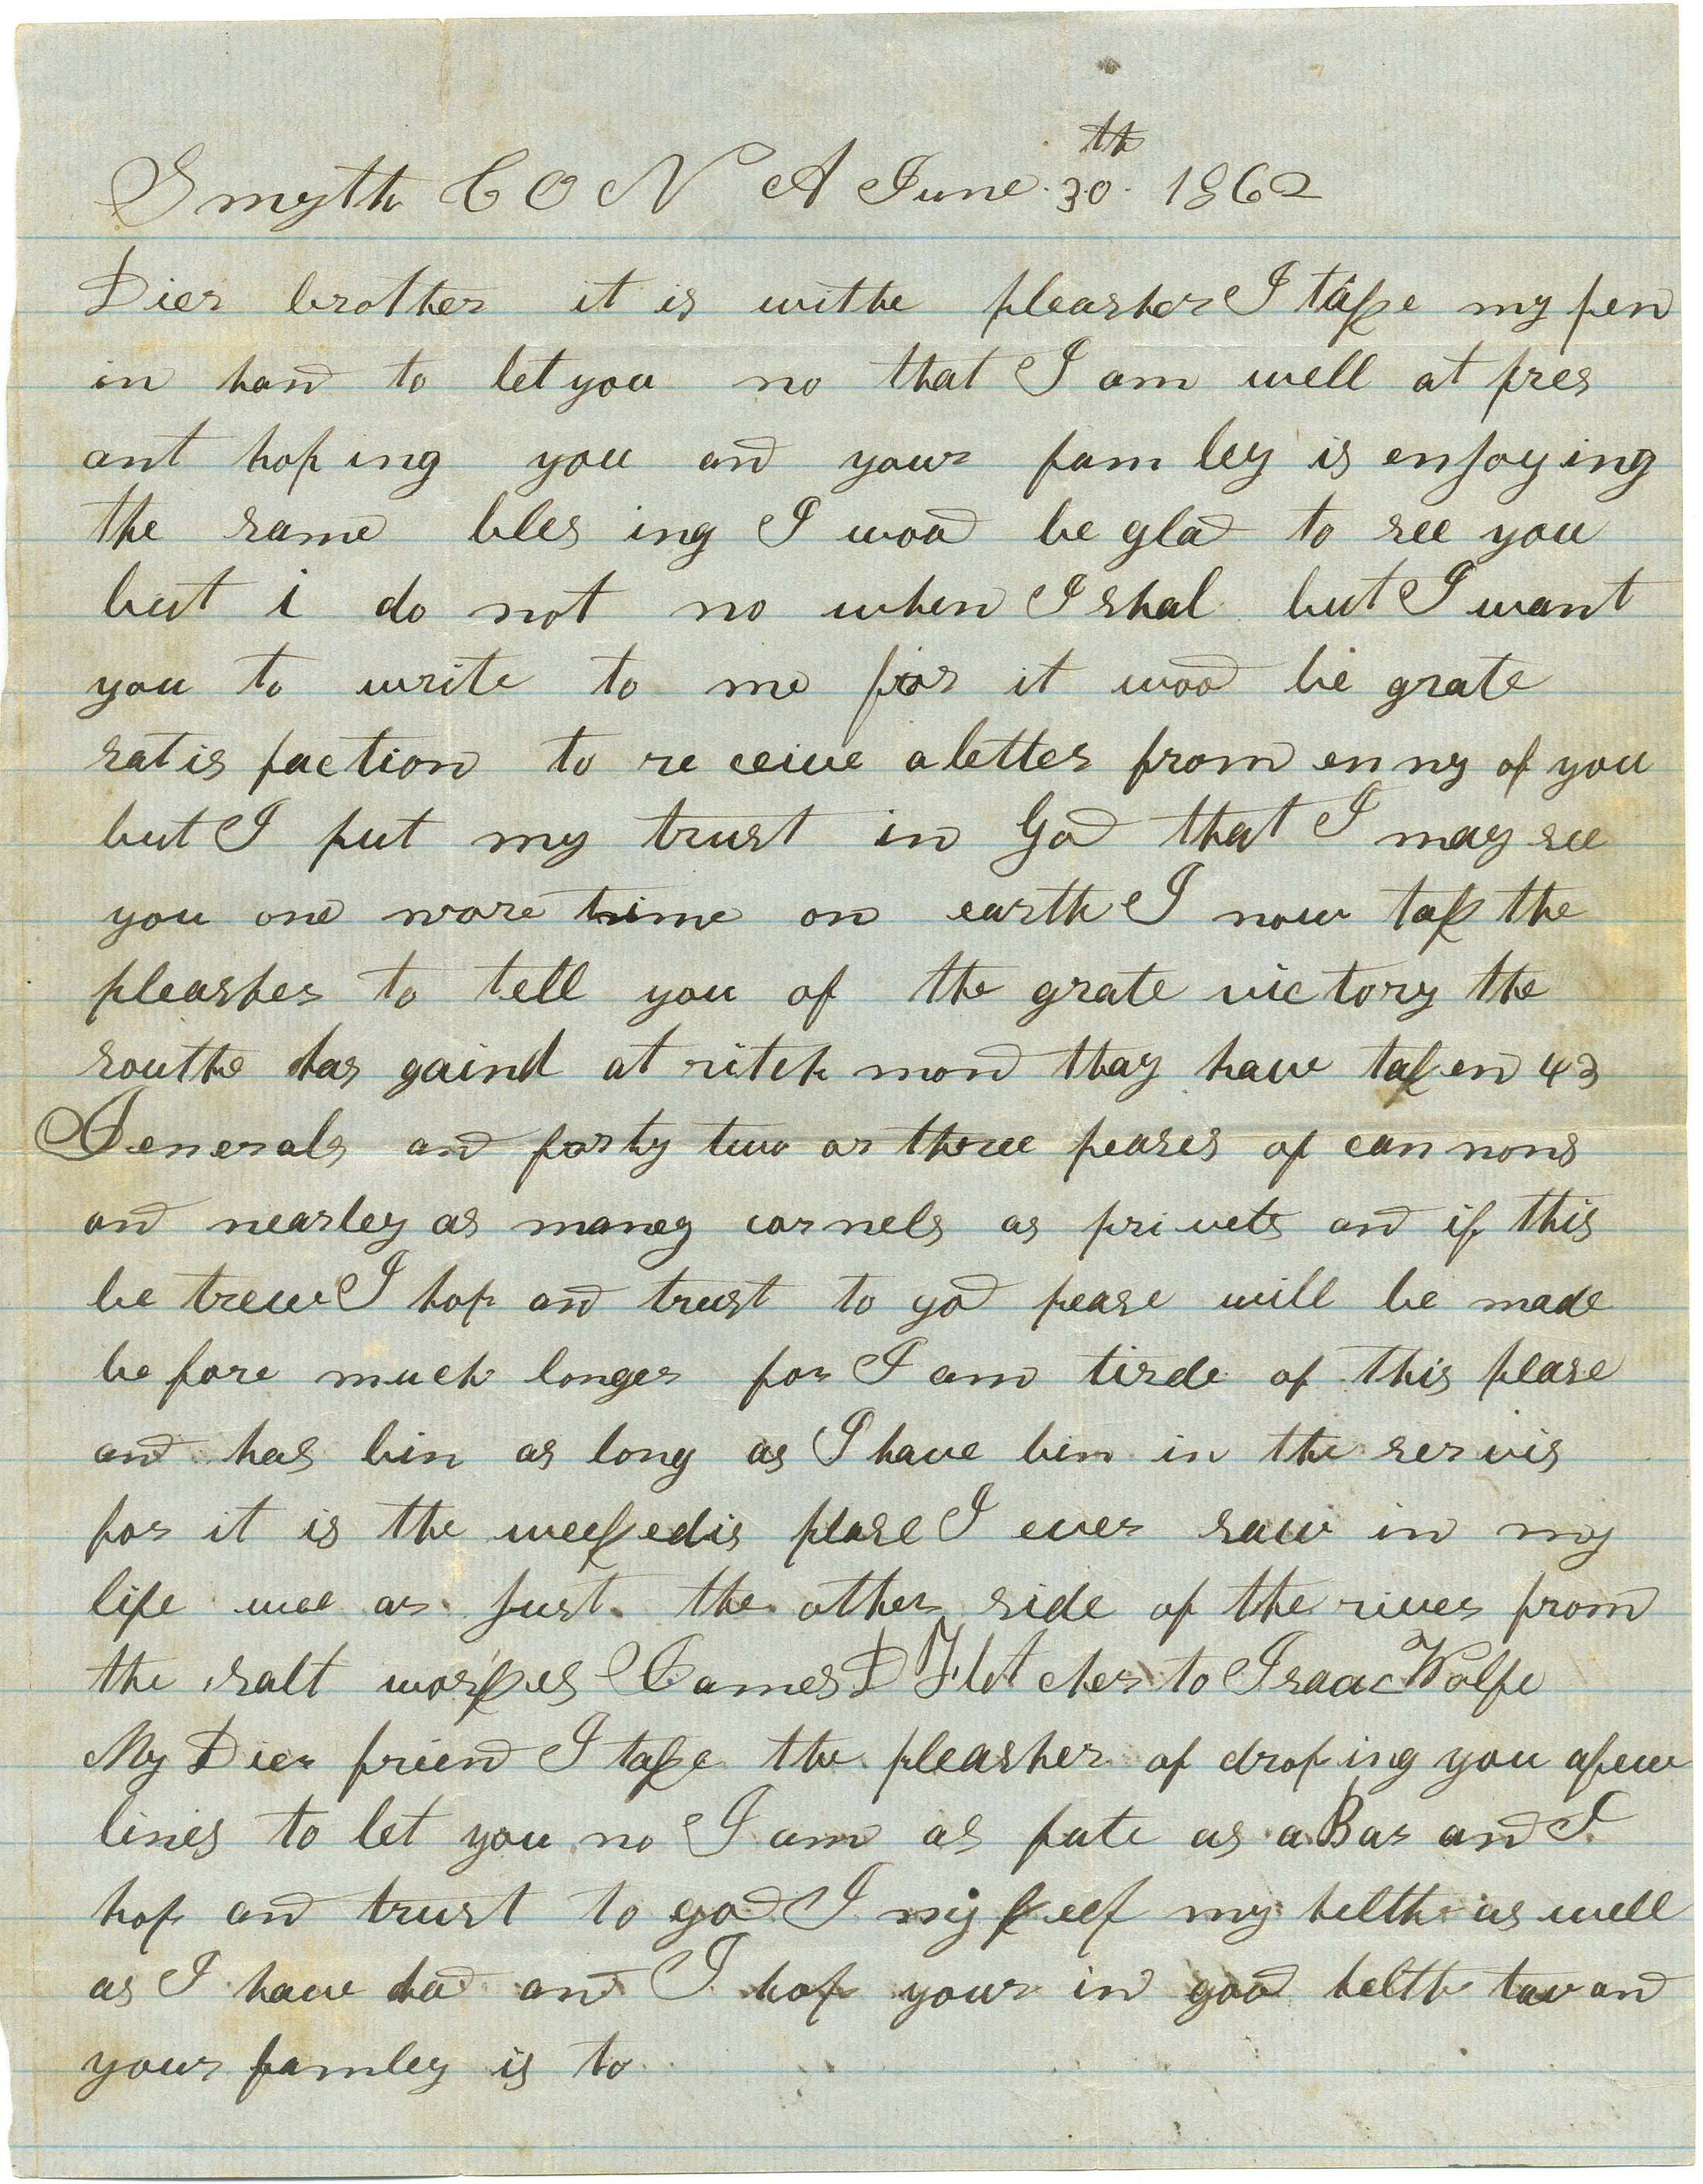 Smyth C O V A June 30th 1862
Dier brother it is withe pleasher I take my pen
in hand to let you no that I am well at pres
ant hop ing you and your fam ley is enjoy ing
the same bles ing I wood be glad to see you
but i do not no when I shal but I want
you to write to me for it wood be grate
satis faction to re ceive a letter from en ny of you
but I put my trust in God that I may see
you one more time on earth I now tak the
pleasher to tell you of the grate vic tory the
southe has gaind at ritch mond thay have taken 43
Generals and forty two or three peases of can nons
and nearley as maney cornels as pri vets and if this
be trew I hop and trust to god pease will be made
be fore much longer for I am tirde of this plase
and has bin as long as I have bin in the ser vis
for it is the week edis plase I ever saw in my
life wee ar just the other side of the river from
the salt workes James D Flet cher to Isaac Wolfe
My Dier friend I take the pleasher of drop ing you a few
lines to let you no I am as fate as a Bar and I
hop and trust to god I my keep my helth as well
as I have had and I hop your in good helth tow and
your famley is to